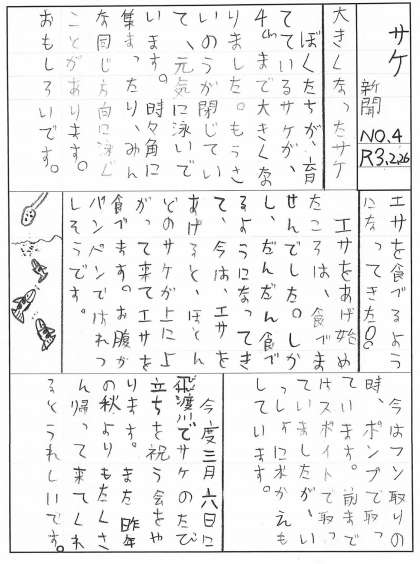 サケ新聞
NO.4
R3.2.26
大きくなったサケ
ぼくたちが、育
てているサケが、
4cmまで大きくな
りました。もうさ
いのうが閉じてい
て、元気に泳いで
います。時々角に
集まったり、みん
な同じ方向に泳ぐ
ことがあります。
おもしろいです。
エサを食べるよう
になってきた!○○
エサをあげ始め
たころは、食べま
せんでした。しか
し、だんだん食べ
るようになってき
て、今は、エサを
あげると、ほとん
どのサケが上によ
がって来てエサを
食べます。お腹が
パンパンではれつ
しそうです。
今はフン取りの
時、ポンプで取っ
ています。前まで
はスポイトで取っ
ていましたが、い
っしょに水かえも
しています。
今度三月六日に
飛渡川でサケのたび
立ちを祝う会をや
ります。また昨年
の秋よりもたくさ
ん帰って来てくれ
るとうれしいです。